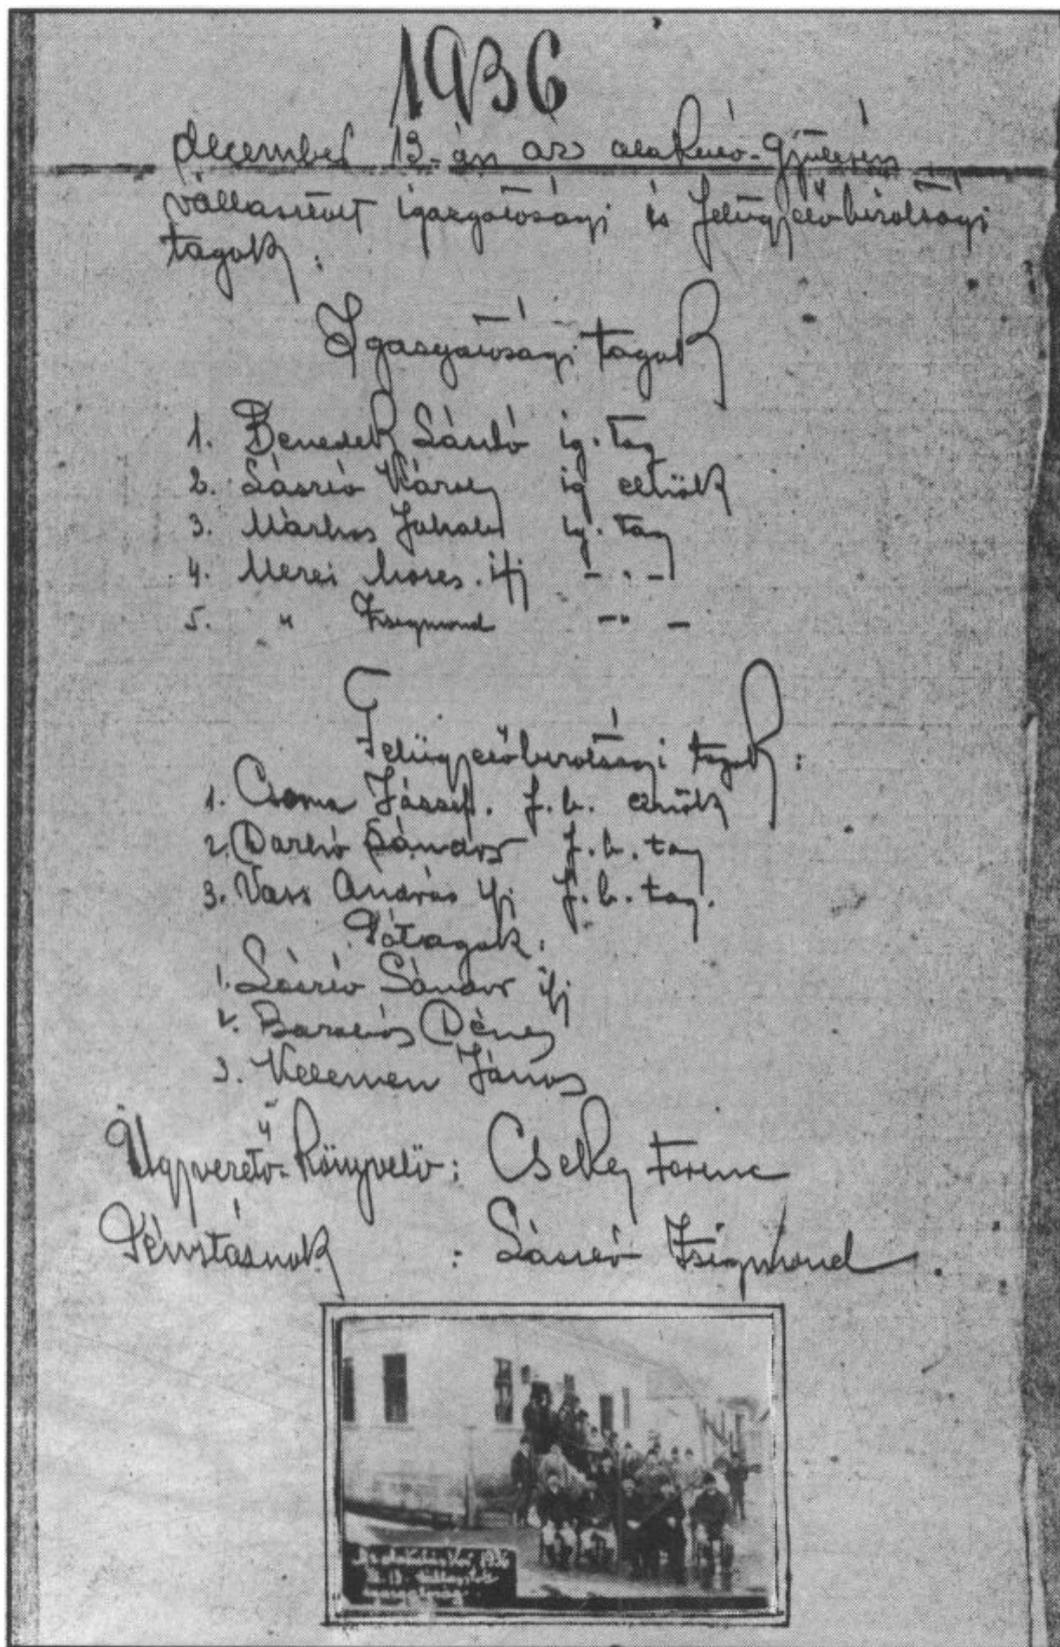 1936
december 13-án az alakuló-gyűlésen
vállasztott igazgatósági és felügyelőbizottsági
tagok:
Igazgatósági tagok
1. Benedek László ig. tag
2. László Károly ig elnök
3. Márkos ig. tag
4. Merei Mozes. ifj - " -
5. " Zsigmond - " -
Felügyelőbizottsági tagok:
1. Csoma József. f.b. elnök
2. Darkó Sándor f.b. tag
3. Vass András ifj f.b. tag.
Póttagok:
1. László Sándor ifj
2. Dénes
3. Kelemen János
Ügyvezető-könyvelő: Cseke Ferenc
Pénztásnok : László Zsigmond.
Az alakuláskor 1936
XII. 13. vállasztott
igazgatóság.